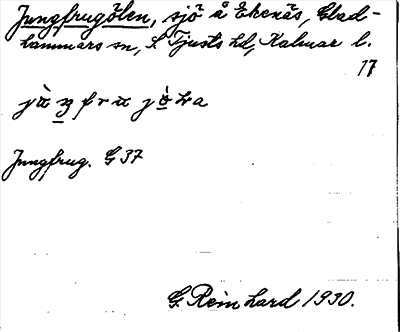 Jungfrugölen, sjö å Ekenäs, Glad-
hammars sn, S Tjusts hd, Kalmar l.
17
Jungfrug. G 37
G. Reinhard 1930.